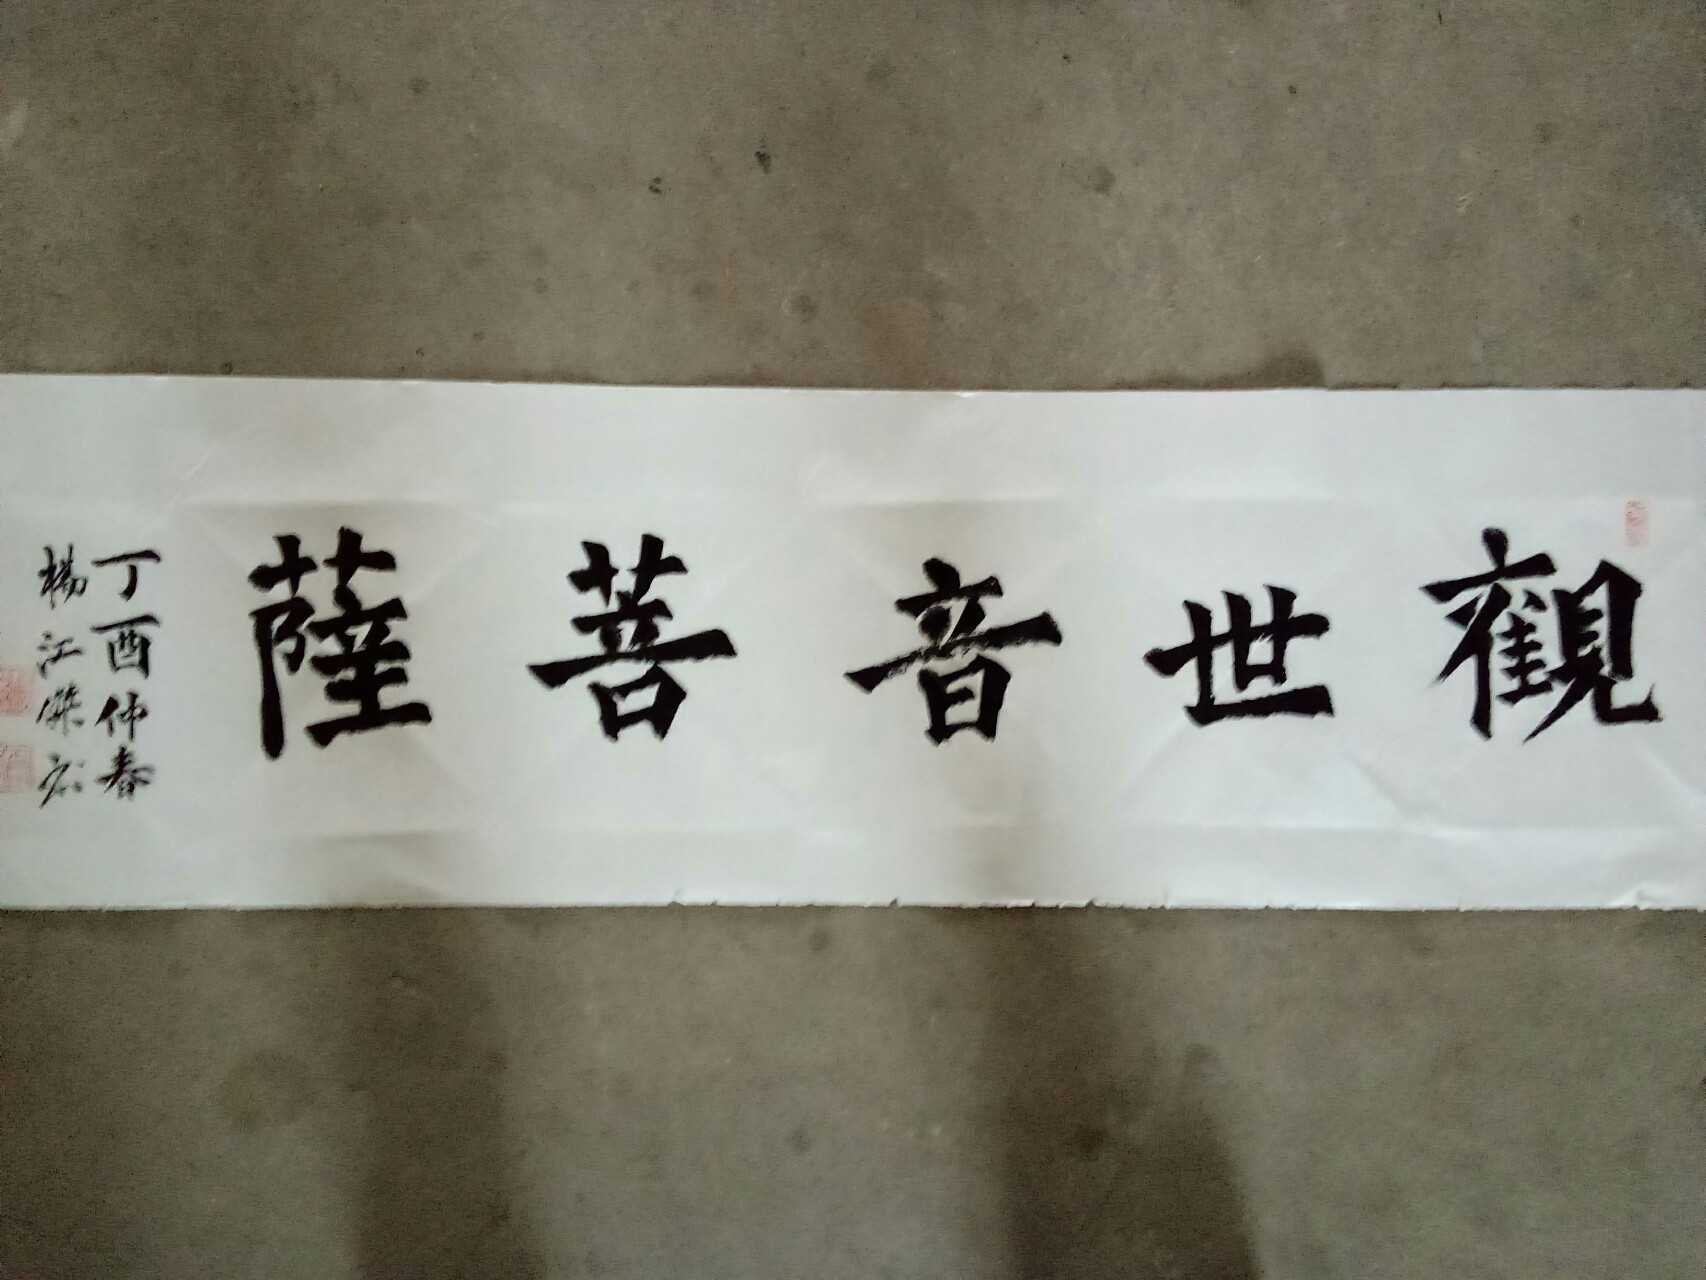 觀世音菩薩
丁酉仲春
楊江傑